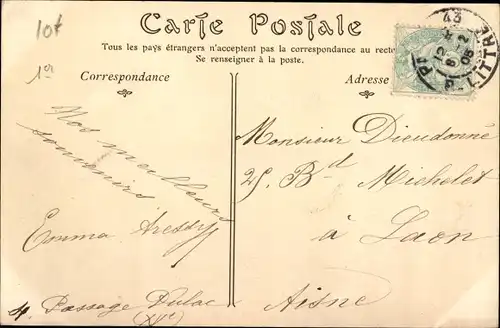 10f
Carte Postale
Tous les pays étrangers n'acceptent pas la correspondance au recto
Se renseigner à la poste.
Correspondance
Adresse
Nos meilleurs
souvenirs
Emma Aressy
4, Passage Dulac
(XVe)
Monsieur Dieudonné
25 Bd Michelet
à Laon
Aisne